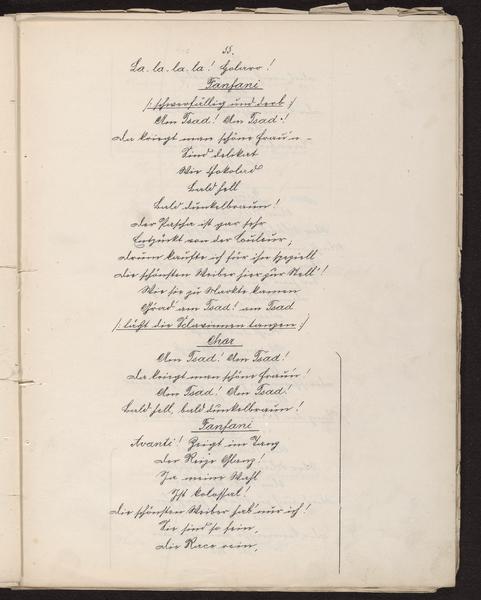 55.
La. la. la. la! Holaro!
Fanfani
/: schwerfällig und derb :/
Am Tsad! Am Tsad!
Da kriegt man schöne Frau'n –
Sind delikat
Wie Chokolad
Bald hell
Bald dunkelbraun!
Der Pascha ist gar sehr
Entzückt von der Couleur,
Drum kaufte ich für ihn speziell
Die schönsten Weiber hier zur Stell'!
Wie sie zu Markte kamen
G'rad am Tsad! am Tsad
/: läßt die Sclavinnen tanzen :/
Chor
Am Tsad! Am Tsad!
Da kriegt man schöne Frau'n!
Am Tsad! Am Tsad!
Bald hell, bald dunkelbraun!
Fanfani
Avanti! Zeigt im Tanz
Der Reize Glanz!
Ja meine Wahl
Ist kolossal!
Die schönsten Weiber hab' nur ich!
Sie sind so fein,
Die Race rein,